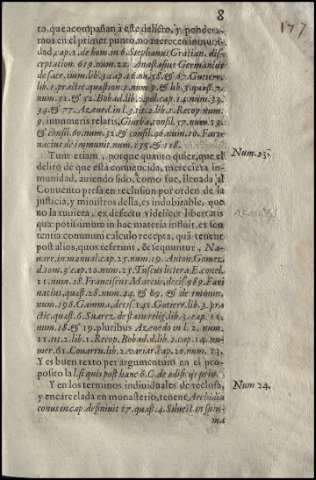 8
177
to, que acompañan à este delicto, y pondera-
mos en el primer punto, no merecen inmuni-
dad, cap. 2. de hom. in 6. Stephanus Gratian. dis-
ceptation 619. num. 22. Anastasius Germanius
de sacr. imm. lib. 3. cap. 16. nn. 58. & 67. Gutierr.
lib. 1. practic. quæstion. 1. num. 9. & lib. 3. quæst. 7.
num. 51. & 52. Bobad. lib. 2. pol. cap. 14. num. 33.
34. & 77. Azeued. in l. 3. tit. 2. lib. 1. Recop. num.
9. innumeris relatis, Giurba, consil. 57. num. 23.
& consil. 60. num. 31. & consil. 46. num. 16. Fari-
nacius de immunit. num. 175. & 118.
Tum etiam, porque quanto quier, que el
delito de que està conuencida, mereciera in-
munidad, auiendo sido, como fue, lleuada al
Conuento presa en reclusion por orden de la
justicia, y ministros della, es indubitable, que
no la tuuiera, ex defectu videlicet libertatis
quæ potissimùm in hac materia influit, ex sen-
tentia communi calculo recepta, quã tenent
post alios, quos referunt, & sequuntur, Na-
uarr. in manual. cap. 25. num. 19. Anton. Gomez.
3. tom. cap. 10. num. 21. Tuscus littera. E. concl.
21. num. 28. Franciscus Marcus, decis. 989. Fari-
nacius, quæst. 28. num. 44. & 69. & de immun.
num. 198. Gamma, decis. 142. Gutierr. lib. 3. pra-
ctic. quæst. 6. Suarez. de statu relig. lib. 3. cap. 11.
num. 18. & 19. pluribus Azeuedo in l. 2. num.
21. tit. 2. lib. 1. Recop. Bobad. d. lib. 2. cap. 14. nu-
mer. 61. Couarru. lib. 2. variar. cap. 20. num. 13.
Y es buen texto per argumentum en el pro-
posito la l. si quis post hanc 8. C. de ædificijs priu.
Num. 23.
Y en los terminos indiuiduales de reclusa,
y encarcelada en monasterio, tenent Archidia
conus in cap. definiuit 17. quæst. 4. Siluest. in sum
ma
Num 24.